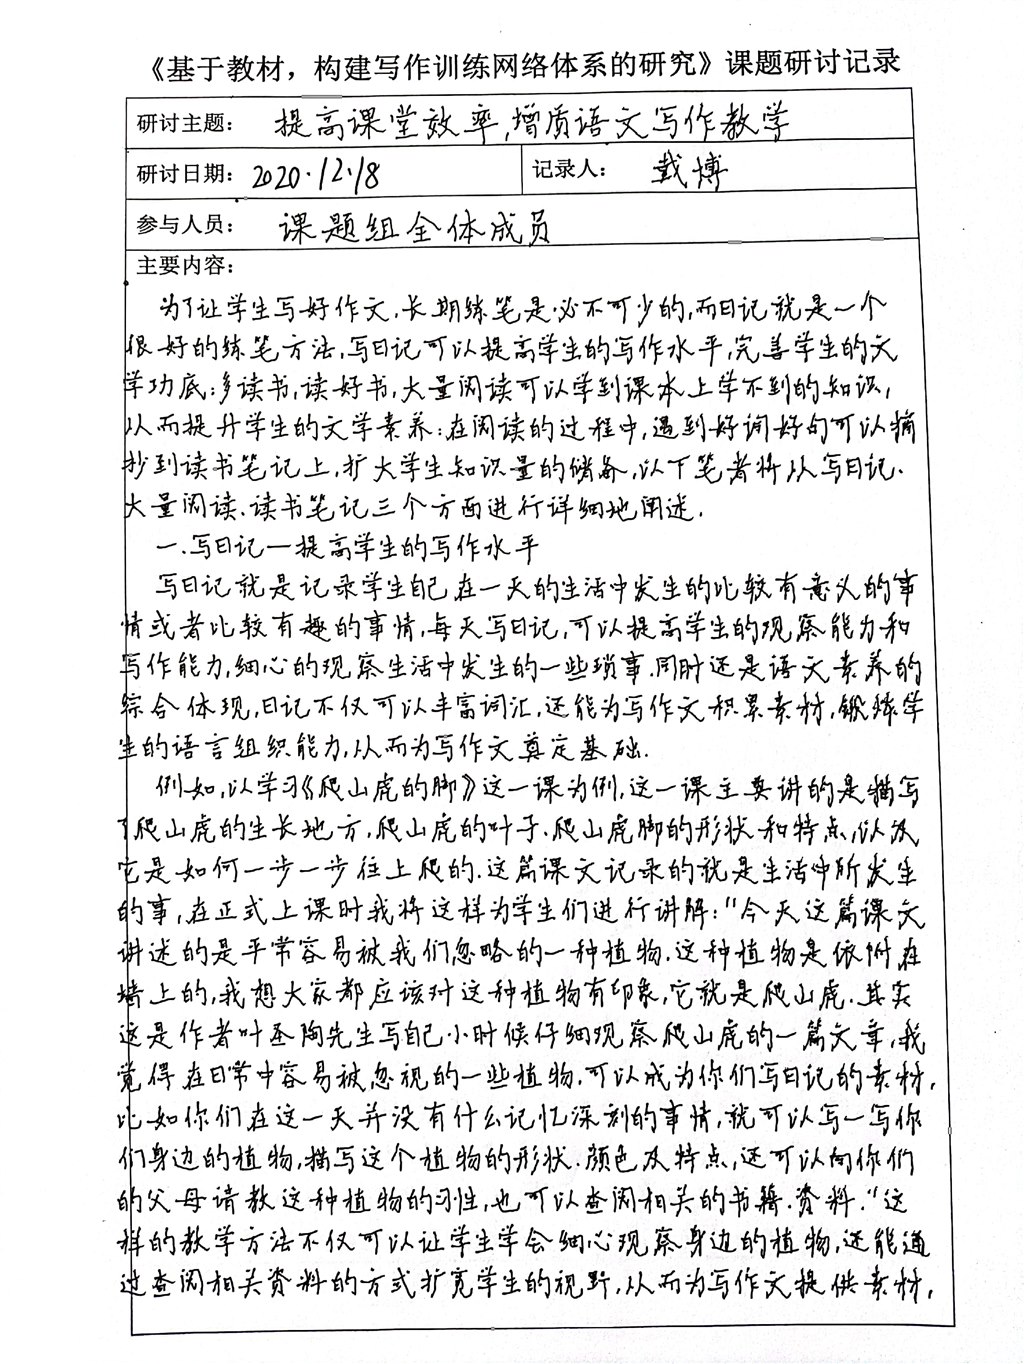 《基于教材，构建写作训练网络体系的研究》课题研讨记录
研讨主题： 提高课堂效率,增质语文写作教学
研讨日期：2020.12.18 记录人： 戴博
参与人员： 课题组全体成员
主要内容：
为了让学生写好作文,长期练笔是必不可少的,而日记就是一个
很好的练笔方法,写日记可以提高学生的写作水平,完善学生的文
学功底;多读书,读好书,大量阅读可以学到课本上学不到的知识,
从而提升学生的文学素养;在阅读的过程中,遇到好词好句可以摘
抄到读书笔记上,扩大学生知识量的储备,以下笔者将从写日记、
大量阅读、读书笔记三个方面进行详细地阐述.
一.写日记—提高学生的写作水平
写日记就是记录学生自己在一天的生活中发生的比较有意义的事
情或者比较有趣的事情,每天写日记,可以提高学生的观察能力和
写作能力,细心的观察生活中发生的一些琐事.同时还是语文素养的
综合体现,日记不仅可以丰富词汇,还能为写作文积累素材,锻炼学
生的语言组织能力,从而为写作文奠定基础.
例如,以学习《爬山虎的脚》这一课为例,这一课主要讲的是描写
了爬山虎的生长地方,爬山虎的叶子、爬山虎脚的形状和特点,以及
它是如何一步一步往上爬的.这篇课文记录的就是生活中所发生
的事,在正式上课时我将这样为学生们进行讲解:"今天这篇课文
讲述的是平常容易被我们忽略的一种植物.这种植物是依附在
墙上的,我想大家都应该对这种植物有印象,它就是爬山虎.其实
这是作者叶圣陶先生写自己小时候仔细观察爬山虎的一篇文章,我
觉得在日常中容易被忽视的一些植物,可以成为你们写日记的素材,
比如你们在这一天并没有什么记忆深刻的事情,就可以写一写你
们身边的植物,描写这个植物的形状、颜色及特点,还可以向你们
的父母请教这种植物的习性,也可以查阅相关的书籍、资料."这
样的教学方法不仅可以让学生学会细心观察身边的植物,还能通
过查阅相关资料的方式扩宽学生的视野,从而为写作文提供素材,